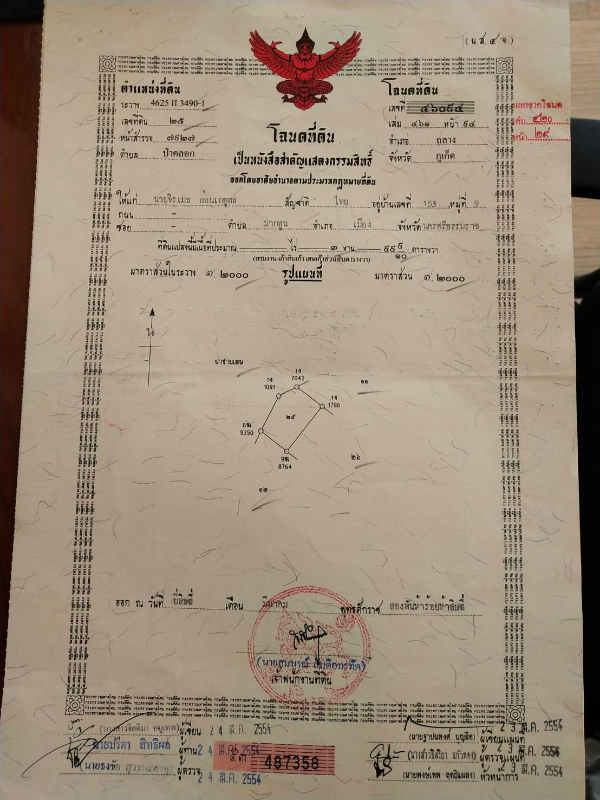 (น.ส.๔ จ.)
ตำแหน่งที่ดิน
ระวาง 4625 II 3490-1
เลขที่ดิน ๒๕
หน้าสำรวจ ๗๙๒๗
ตำบล ป่าคลอก
โฉนดที่ดิน
เลขที่ ๔๖๐๙๔
เล่ม ๔๖๑ หน้า ๙๔
อำเภอ ถลาง
จังหวัด ภูเก็ต
แยกจากโฉนด
เล่ม ๔๒๐
หน้า ๒๙
โฉนดที่ดิน
เป็นหนังสือสำคัญแสดงกรรมสิทธิ์
ออกโดยอาศัยอำนาจตามประมวลกฎหมายที่ดิน
ให้แก่ สัญชาติ ไทย อยู่บ้านเลขที่ 153 หมู่ที่ 9
ถนน -
ซอย - ตำบล ปากพูน อำเภอ เมือง จังหวัด นครศรีธรรมราช
ที่ดินแปลงนี้มีเนื้อที่ประมาณ - ไร่ ๓ งาน ๙๙ ๙/๑๐ ตารางวา
(สามงาน เก้าสิบเก้า เศษเก้าส่วนสิบตารางวา)
มาตราส่วนในระวาง ๑:๒๐๐๐ รูปแผนที่ มาตราส่วน ๑:๒๐๐๐
น
1081
7042
๑๑
1796
๒๕
9350
8764
๒๖
๑๒
ออก ณ วันที่ ยี่สิบสี่ เดือน มีนาคม พุทธศักราช สองพันห้าร้อยห้าสิบสี่
เจ้าพนักงานที่ดิน
ผู้เขียน 24 มี.ค. 2554
นายปรีดา สิทธิผล ผู้ทาน 24 มี.ค. 2554
ผู้ตรวจ 24 มี.ค. 2554
487358
ผู้เขียนแผนที่ 23 มี.ค. 2554
ผู้ตรวจแผนที่ 23 มี.ค. 2554
หัวหน้าการ 23 มี.ค. 2554